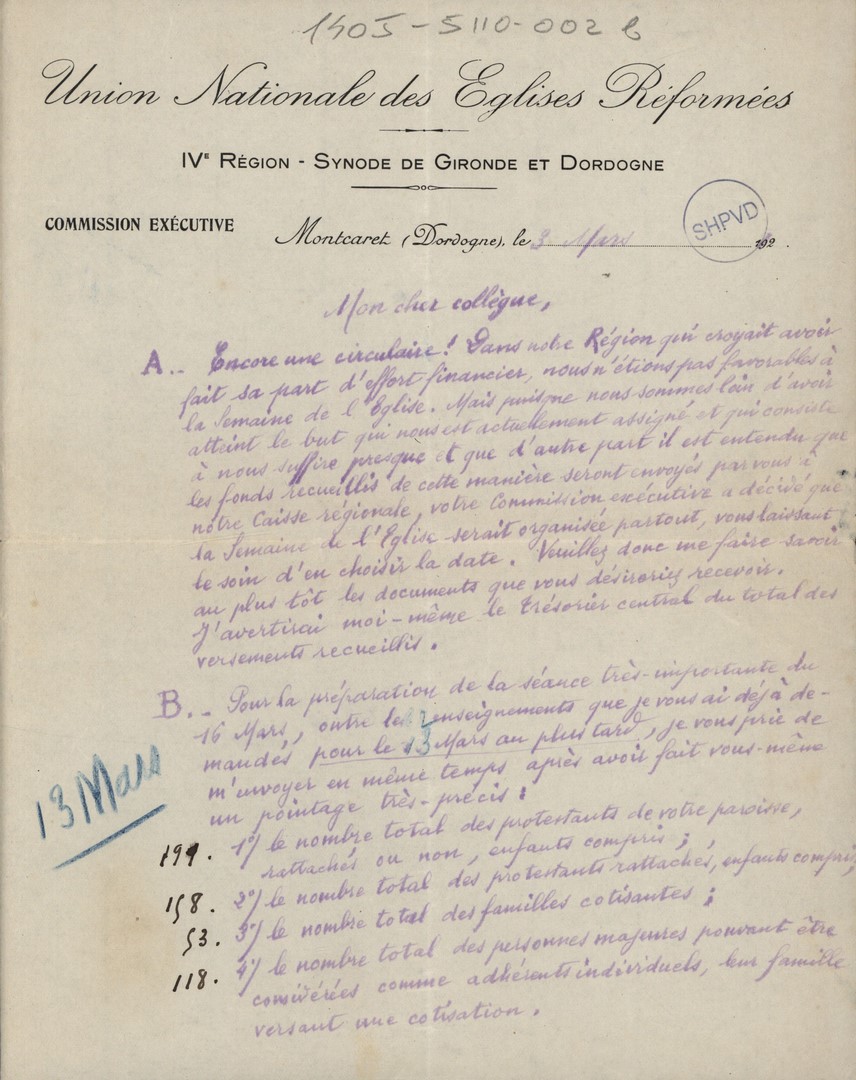 1405-5110-002 b
Union Nationale des Eglises Réformées
IVE RÉGION - SYNODE DE GIRONDE ET DORDOGNE
COMMISSION EXÉCUTIVE
Montcaret (Dordogne), le 3 Mars 192
SHPVD
Mon cher collègue,
A.. Encore une circulaire! Dans notre Région qui croyait avoir
fait sa part d'effort financier, nous n'étions pas favorables à
la Semaine de l'Eglise. Mais puisque nous sommes loin d'avoir
atteint le but qui nous est actuellement assigné et qui consiste
à nous suffire presque et que d'autre part il est entendu que
les fonds recueillis de cette manière seront envoyés par vous à
notre Caisse régionale, votre Commission exécutive a décidé que
la Semaine de l'Eglise serait organisée partout, vous laissant
le soin d'en choisir la date. Veuillez donc me faire savoir
au plus tôt les documents que vous désireriez recevoir.
J'avertirai moi-même le trésorier central du total des
versements recueillis.
B.. Pour la préparation de la séance très-importante du
16 Mars, outre les renseignements que je vous ai déjà de-
mandés pour le 13 Mars au plus tard, je vous prie de
m'envoyer en même temps après avoir fait vous-même
un pointage très-précis:
13 Mars
199. 1°/ le nombre total des protestants de votre paroisse,
rattachés ou non, enfants compris;
158. 2°/ le nombre total des protestants rattachés, enfants compris;
53. 3°/ le nombre total des familles cotisantes;
118. 4°/ le nombre total des personnes majeures pouvant être
considérées comme adhérents individuels, leur famille
versant une cotisation.